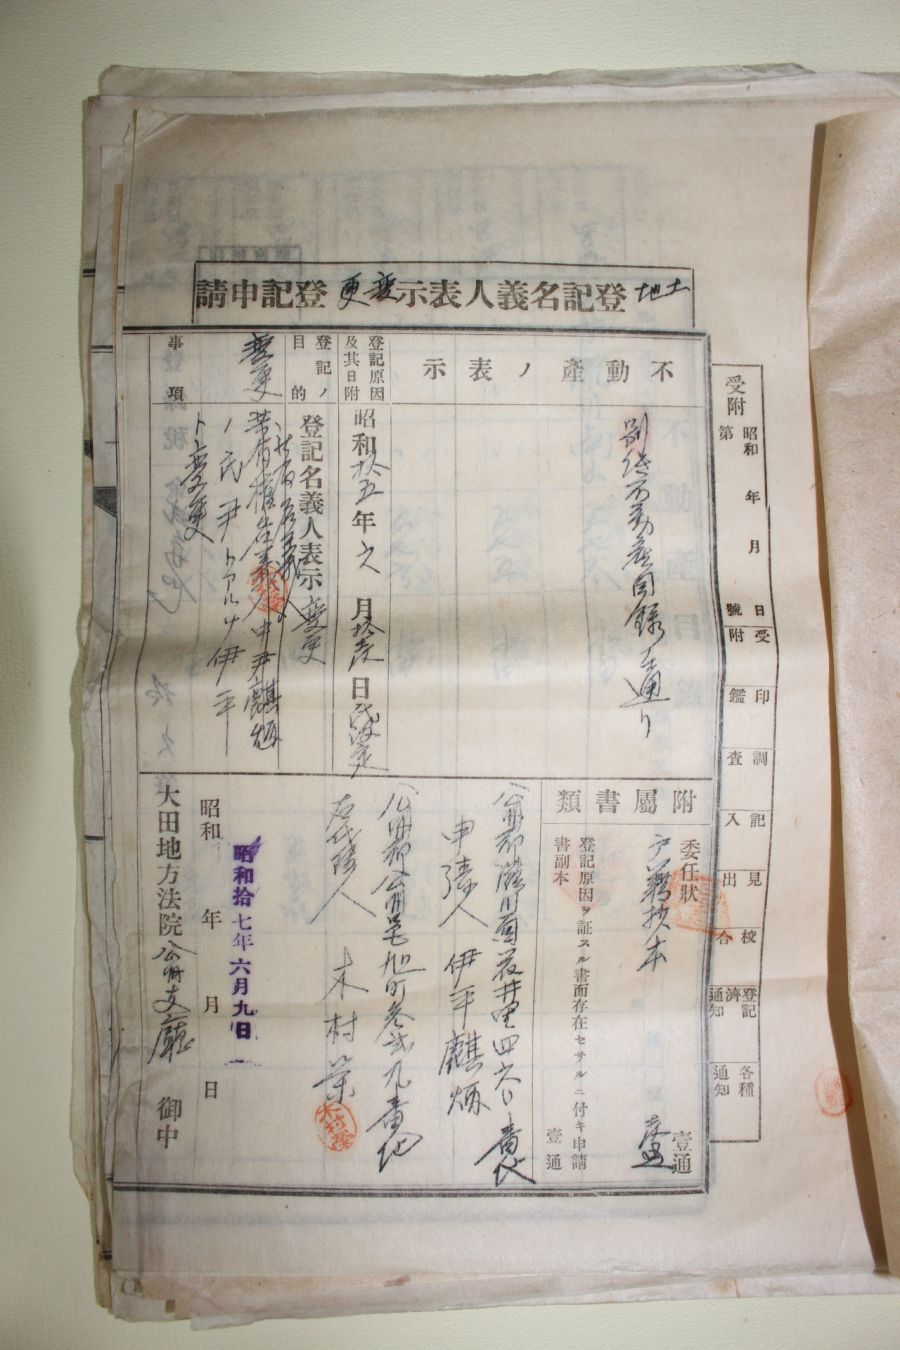 土地登記名義人表示變更登記申請
受附
昭和 年 月 日
第 號
受附
印鑑
調査
記入
見出
校合
登記濟通知
各種通知
不動產ノ表示
別紙不動產目錄ノ通リ
登記原因及其日附
昭和拾五年六月拾六日氏設定
登記ノ目的
登記名義人表示變更
變更
事項
共有權登記名義人中尹麒炳
ノ氏尹トアルヲ伊平
ト變更
附屬書類
委任狀 壹通
戶籍抄本 壹通
登記原因ヲ証スル書面存在セサルニ付キ申請書副本 壹通
公州郡灘川面 井里四六 番地
申請人 伊平麒炳
公州郡公州邑旭町參貳九番地
右代理人 木村榮
昭和 年 月 日
昭和拾七年六月九日
大田地方法院公州支廳 御中